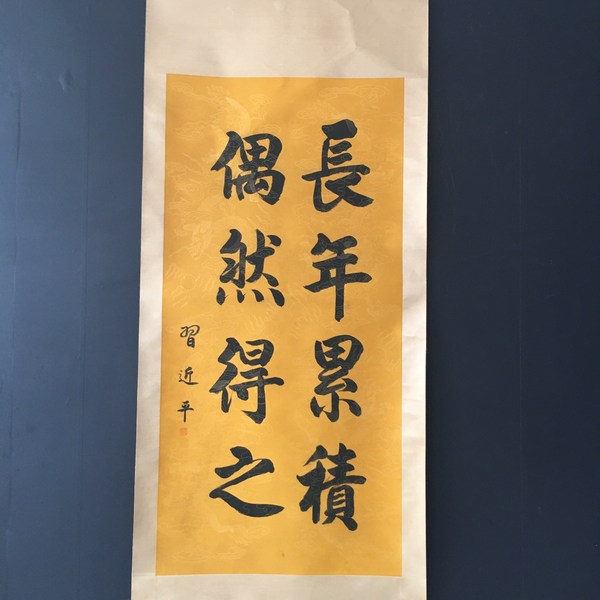 長年累積
偶然得之
習近平